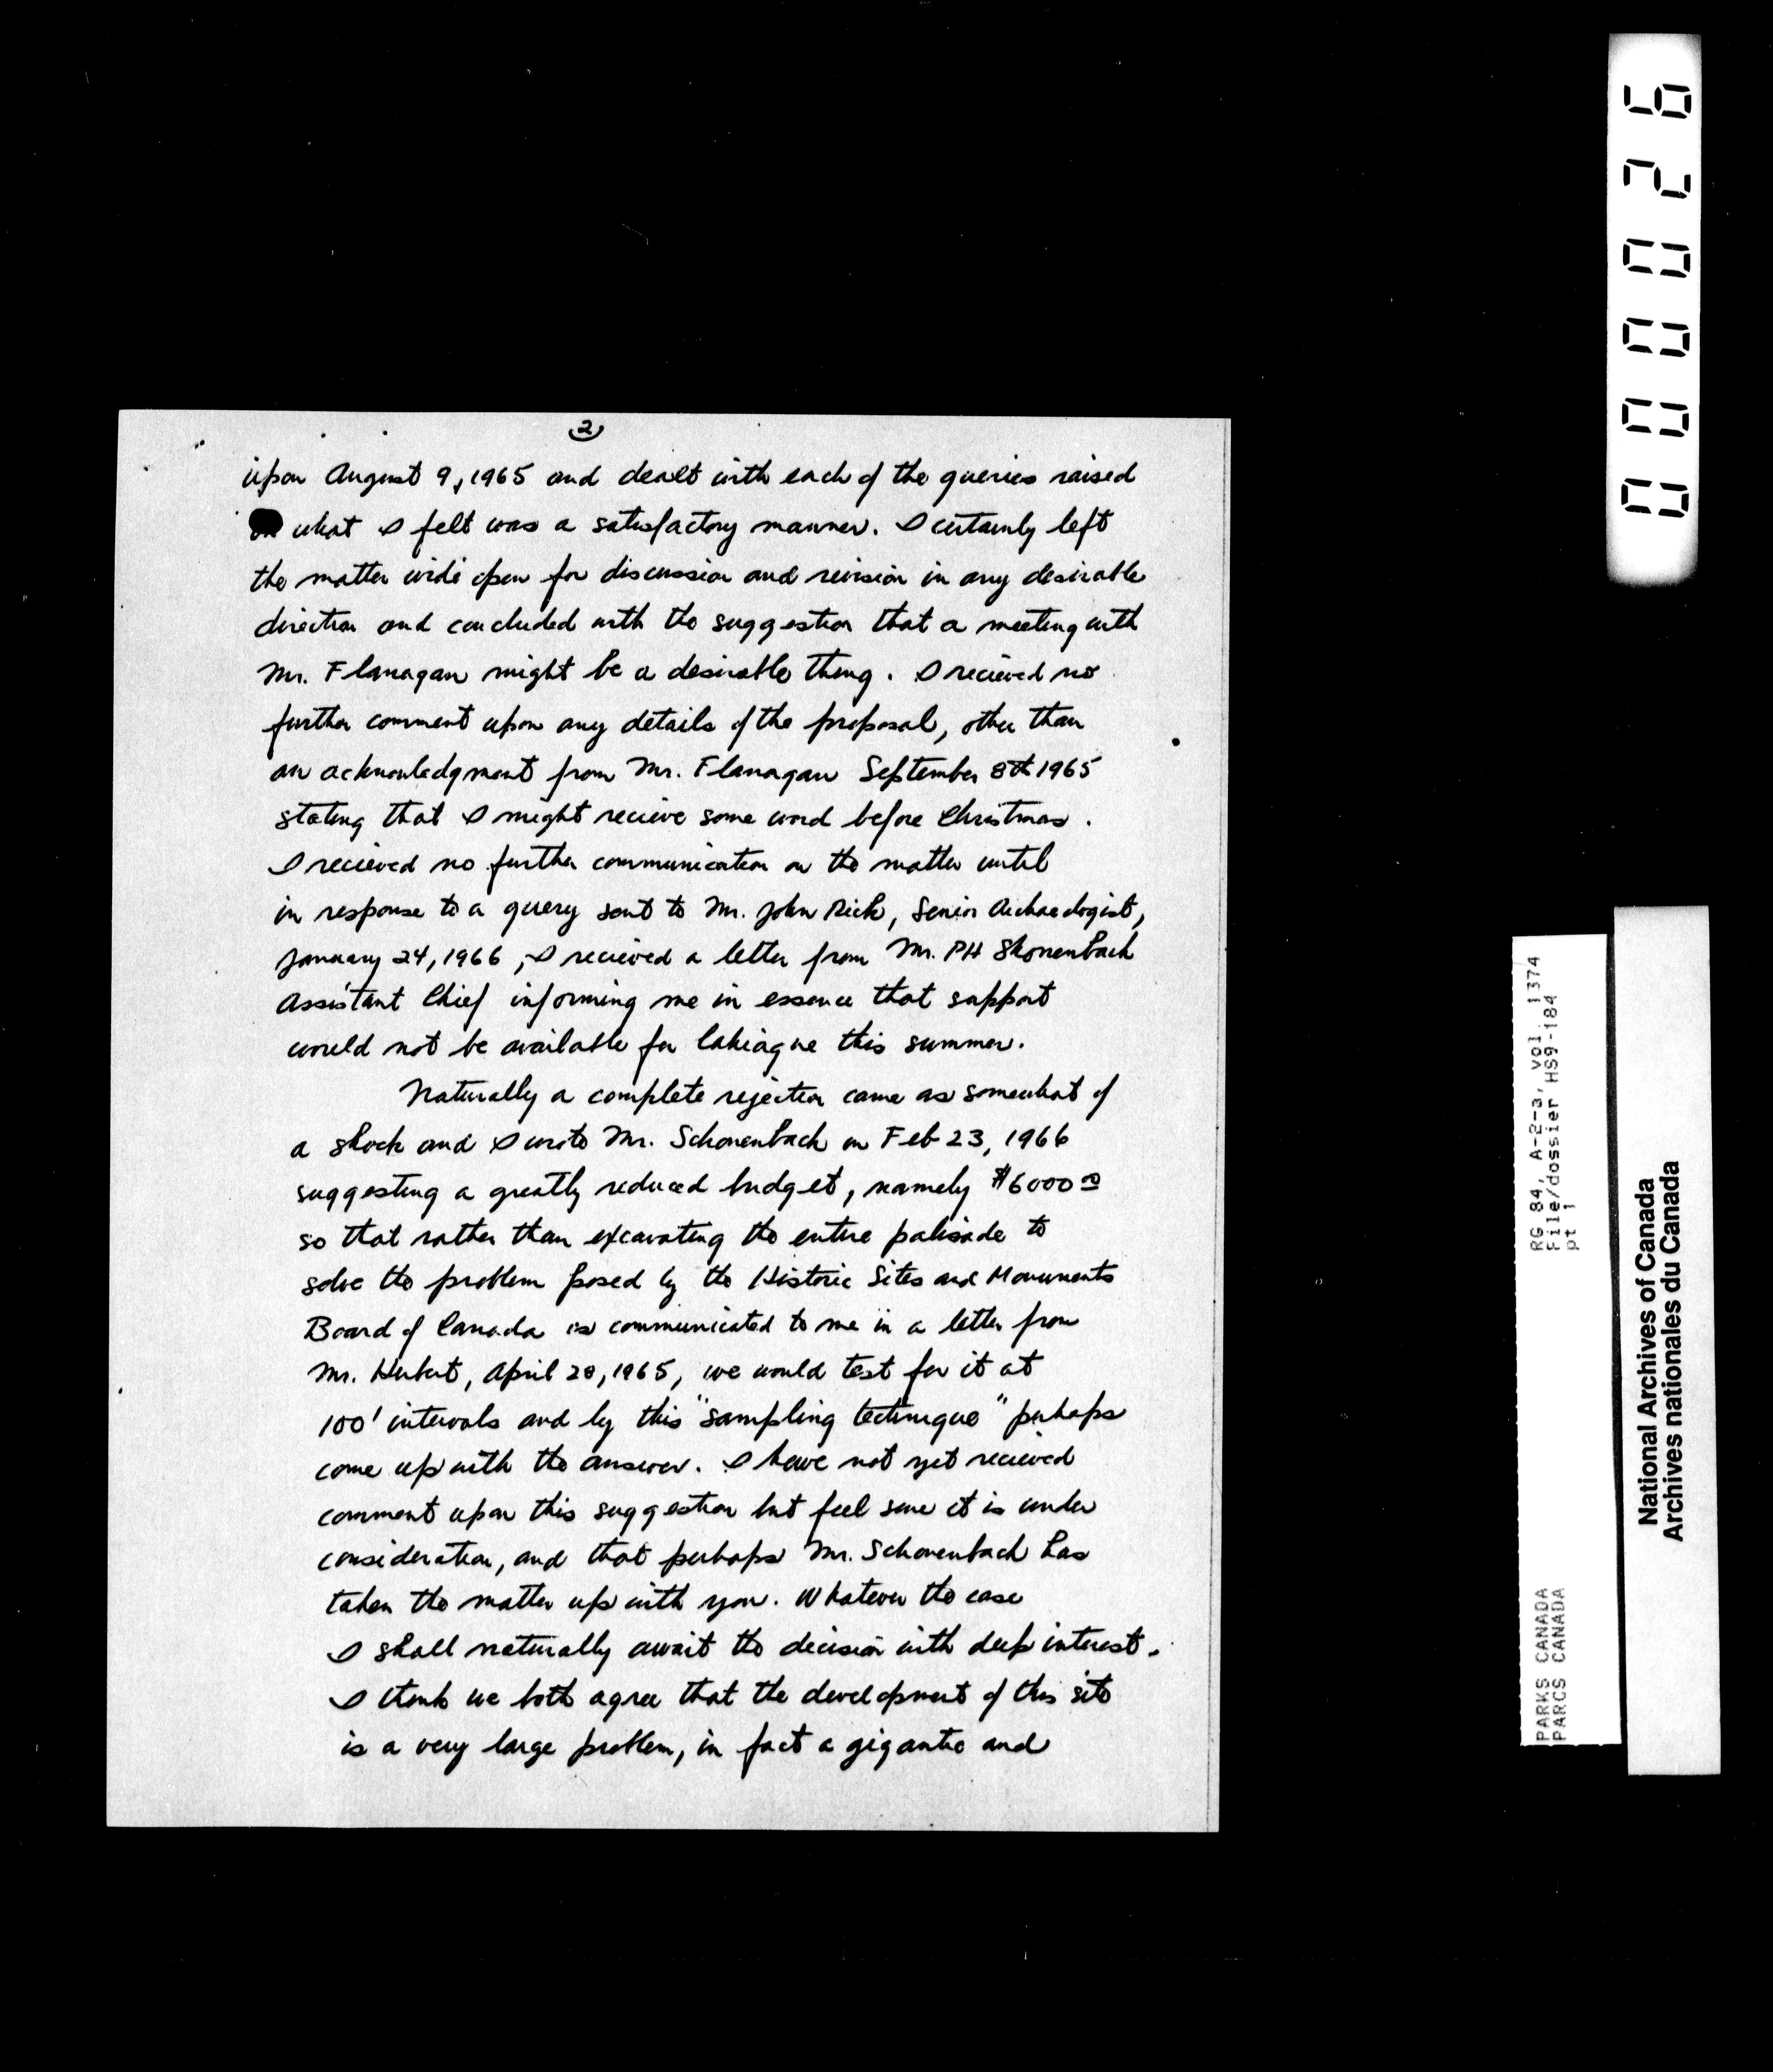 2
upon August 9, 1965 and dealt with each of the queries raised
in what I felt was a satisfactory manner. I certainly left
the matter wide open for discussion and revision in any desirable
direction and concluded with the suggestion that a meeting with
Mr. Flanagan might be a desirable thing. I recieved no
further comment upon any details of the proposal, other than
an acknowledgment from Mr. Flanagan September 8th 1965
stating that I might recieve some word before Christmas.
I recieved no further communication on the matter until
in response to a query sent to Mr. John Rick, Senior Archaeologist,
January 24, 1966, I recieved a letter from Mr. PH Shonenbach
Assistant Chief informing me in essence that support
would not be available for Cahiague this summer.
Naturally a complete rejection came as somewhat of
a shock and I wrote Mr. Schonenbach on Feb 23, 1966
suggesting a greatly reduced budget, namely $6000 00
so that rather than excavating the entire palisade to
solve the problem posed by the Historic Sites and Monuments
Board of Canada as communicated to me in a letter from
Mr. Herbert, April 28, 1965, we would test for it at
100' intervals and by this "sampling technique" perhaps
come up with the answer. I have not yet recieved
comment upon this suggestion but feel sure it is under
consideration, and that perhaps Mr. Schonenbach has
taken the matter up with you. Whatever the case
I shall naturally await the decision with deep interest.
I think we both agree that the development of this site
is a very large problem, in fact a gigantic and
000026
RG 84, A-2-a, vol. 1374
File/dossier HS9-184
pt 1
PARKS CANADA
PARCS CANADA
National Archives of Canada
Archives nationales du Canada